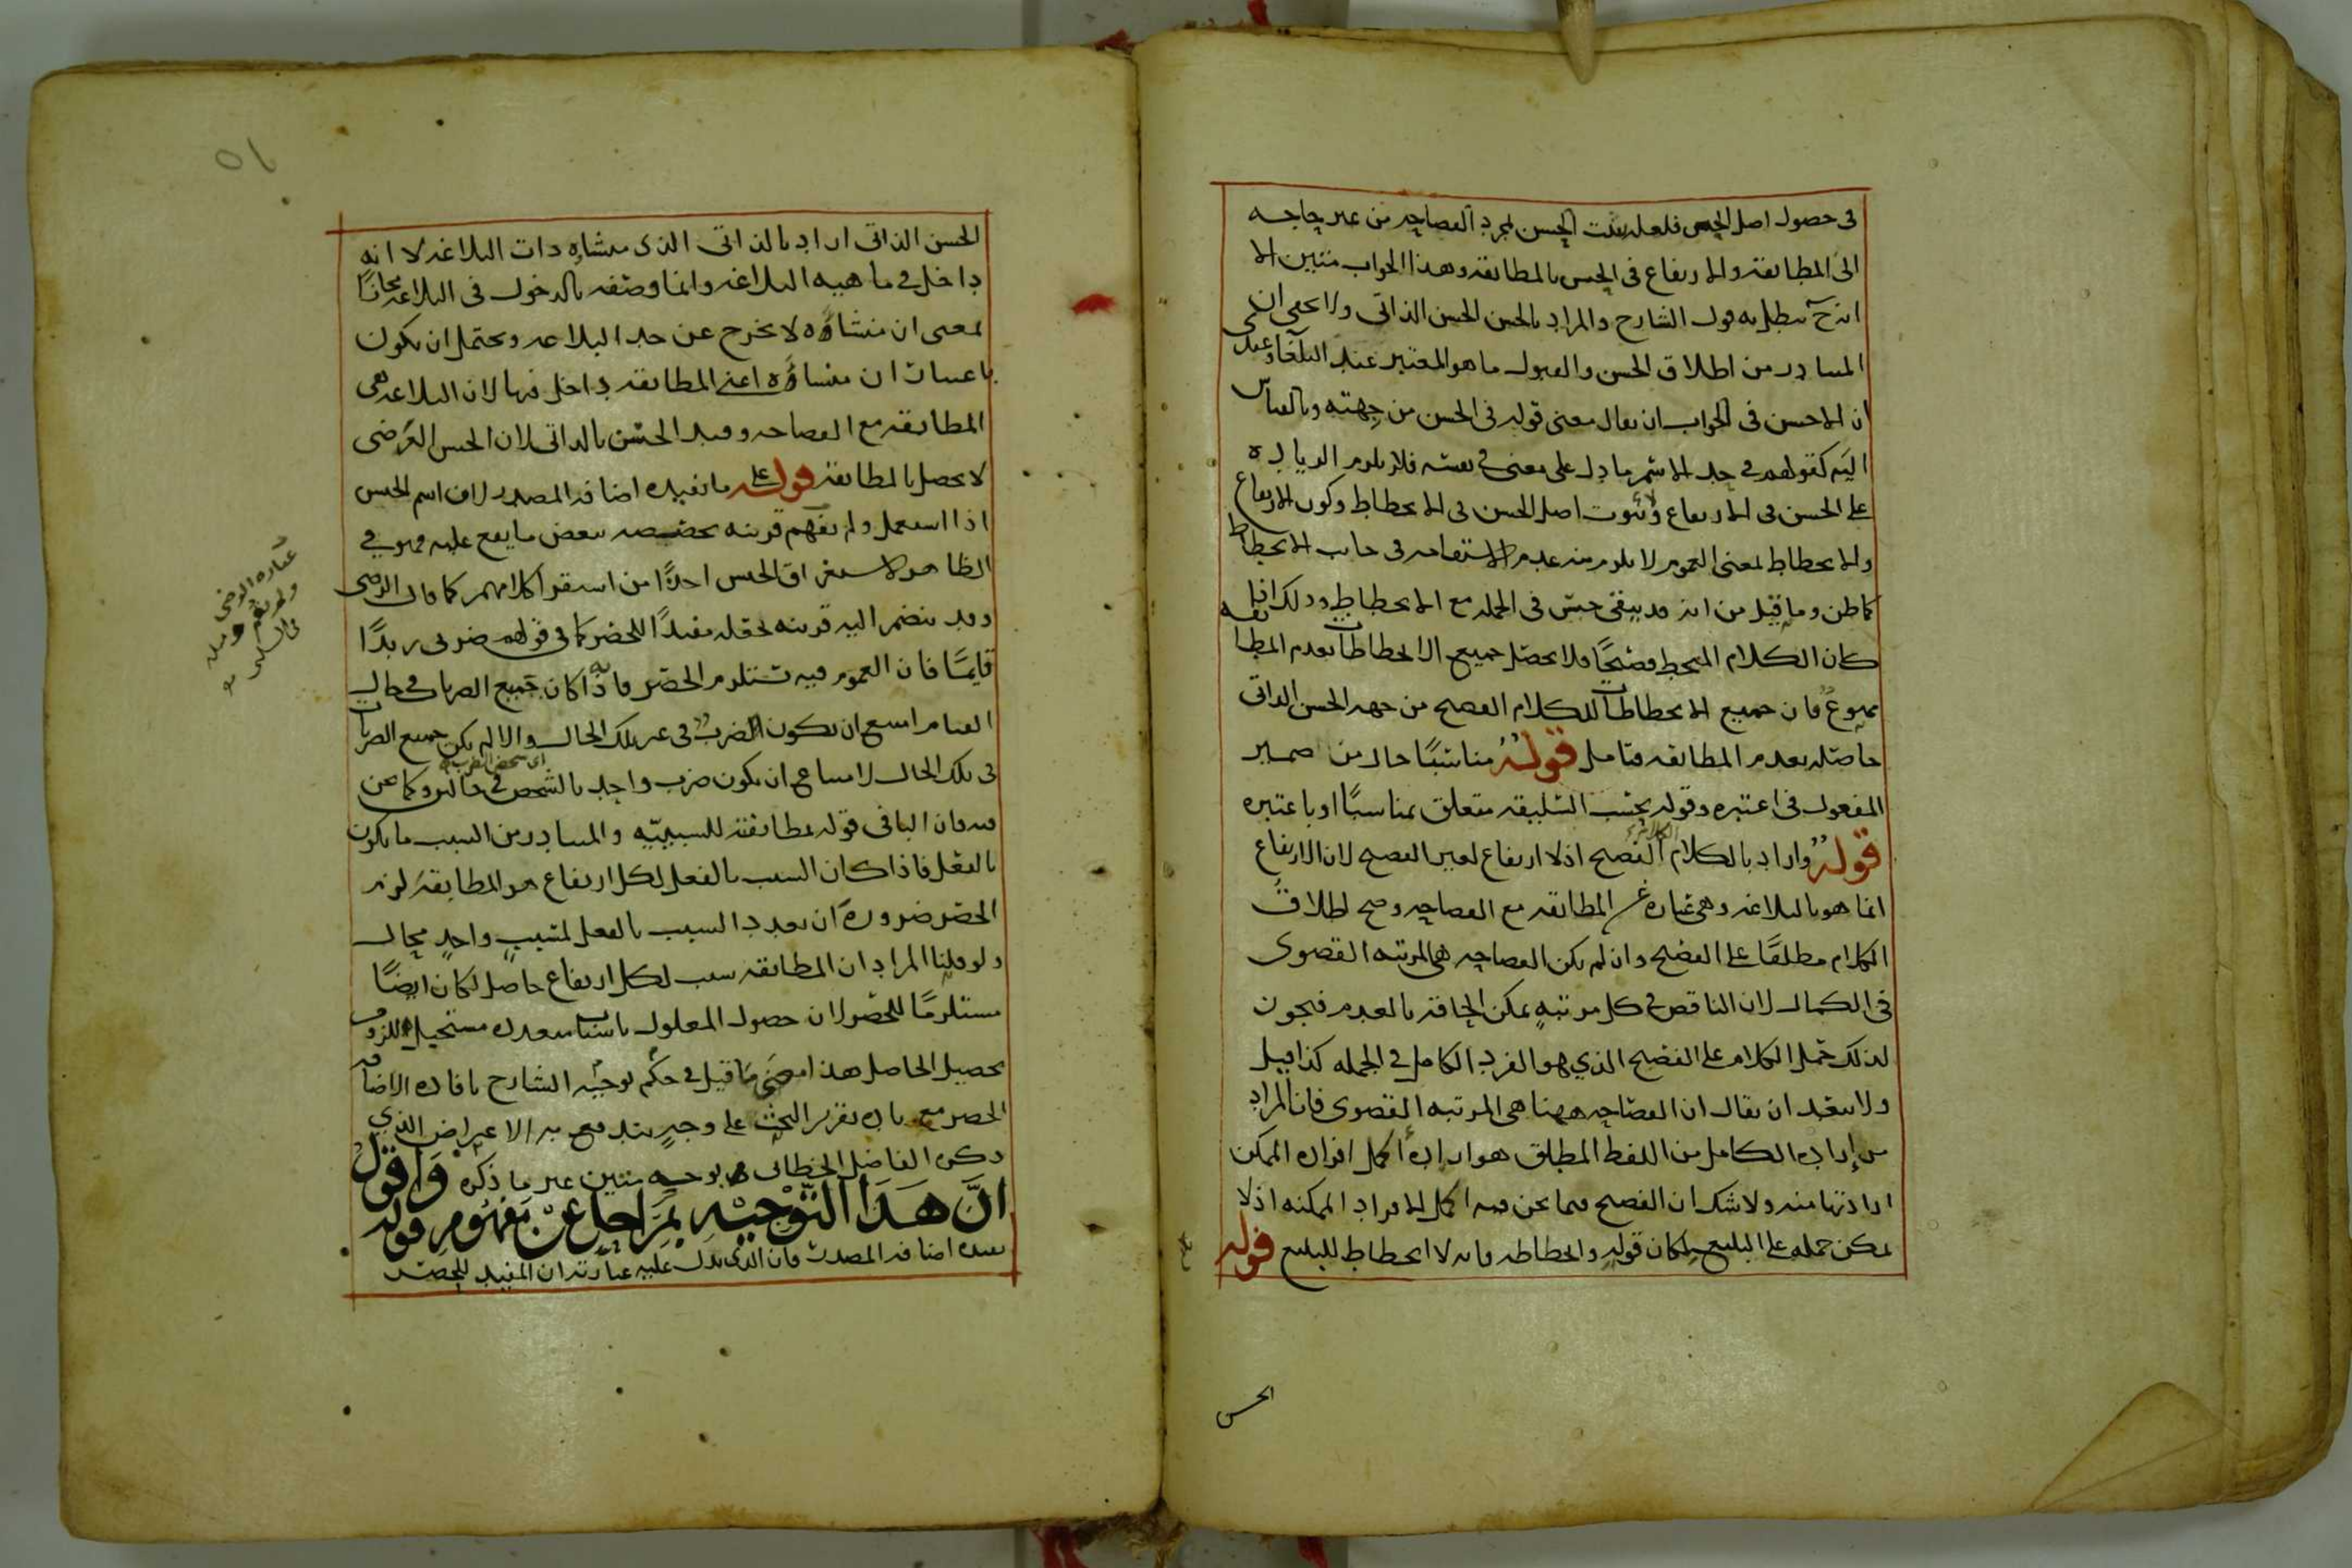 فى حصول اصل الحسن فلعله يثبت الحسن لمجرد الفصاحه من غير حاجه
الى المطابقة والارتفاع فى الحسن بالمطابقه وهذا الجواب متين الا
انه ح يبطل به قول الشارح والمراد بالحسن الحسن الذاتى ولا يخفى ان
المتبادر من اطلاق الحسن والقبول ما هو المعتبر عند البلغاء وعندى
ان الاحسن فى الجواب ان يقال معنى قوله فى الحسن من جهته وبالقياس
اليه كقولهم فى حد الاسم ما دل على معنى فى نفسه فلا يلزم الزياده
على الحسن فى الارتفاع ولا ثبوت اصل الحسن فى الانحطاط وكون الارتفاع
والانحطاط لمعنى العموم لا يلزم منه عدم الاستقامه فى جانب الانحطاط
كما ظن وما قيل من انه قد يبقى حسن فى الجمله مع الانحطاط وذلك اذا
كان الكلام المنحط فصيحًا فلا يحصل جميع الانحطاطات بعدم المطابقه
ممنوع فان جميع الانحطاطات للكلام الفصيح من جهه الحسن الذاتى
حاصله بعدم المطابقه فتامل قوله مناسبًا حال من ضمير
المفعول فى اعتبره وقوله بحسب السليقه متعلق بمناسبًا او باعتبره
قوله واراد بالكلام الكلام الفصيح اذ لا ارتفاع لغير الفصيح لان الارتفاع
انما هو بالبلاغه وهى عبارة عن المطابقه مع الفصاحه وصح اطلاق
الكلام مطلقًا على الفصيح وان لم يكن الفصاحه هى المرتبه القصوى
فى الكمال لان الناقص فى كل مرتبةٍ يمكن الحاقه بالعدم فيجوز
لذلك حمل الكلام على الفصيح الذي هو الفرد الكامل فى الجمله كذا قيل
ولا يبعد ان يقال ان الفصاحه ههنا هى المرتبه القصوى فان المراد
من إراده الكامل من اللفظ المطلق هو ارادة اكمل افراده الممكن
ارادتها منه ولا شك ان الفصيح فيما نحن فيه اكمل الافراد الممكنه اذ لا
يمكن حمله على البليغ لمكان قوله وانحطاطه فانه لا انحطاط للبليغ قوله
الحسن
٥١
الحسن الذاتى اراد بالذاتى الذى منشاه ذات البلاغه لا انه
داخل فى ماهيه البلاغه وانما وصفه بالدخول فى البلاغه مجازًا
بمعنى ان منشاؤه لا يخرج عن حد البلاغه ويحتمل ان يكون
باعتبار ان منشاؤه اعنى المطابقه داخل فيها لان البلاغه هى
المطابقه مع الفصاحه وقيد الحسن بالذاتى لان الحسن العرضى
لا يحصل بالمطابقة قوله على ما تفيده اضافه المصدر لان اسم الجنس
اذا استعمل ولم تفهم قرينه تخصصه ببعض ما يقع عليه فهو فى
الظاهر لاستغراق الجنس اخذًا من استقرا كلامهم كما قال الرضى
وقد ينضم اليه قرينه تجعله مفيدًا للحصر كما فى قولهم ضربى زيدًا
قايمًا فان العموم فيه تستلزم الحصر فانه اذا كان جميع الضربات فى حال
القيام امتنع ان يكون الضرب فى غير تلك الحال والا لم يكن جميع الضربات
فى تلك الحال لامتناع ان يكون ضرب واحد بالشخص فى حالين وكما نحن
فيه فان البا فى قوله بمطابقته للسببيّه والمتبادر من السبب ما يكون
بالفعل فاذا كان السبب بالفعل لكل ارتفاع هو المطابقه لزم
الحصر ضرورة ان تعدد السبب بالفعل لمسببٍ واحدٍ محال
ولو قلنا المراد ان المطابقه سبب لكل ارتفاع حاصل لكان ايضًا
مستلزمًا للحصر لان حصول المعلول باسباب متعدده مستحيل للزوم
تحصيل الحاصل هذا امضى ما قيل فى حكم توجيه الشارح بافاده الاضافه
الحصر مع زياده تقرير البحث على وجهٍ يندفع به الاعتراض الذي
ذكره الفاضل الخطائى بوجه متين غير ما ذكره وَاقول
انَّ هَذَا التّوْجيْه بمَراحل عَنْ مَفهُومِ قوله
تفيده اضافه المصدر فان الذى يدل عليه عبارته ان المفيد للحصر
عباره الرضى
ولم تقم قرينه